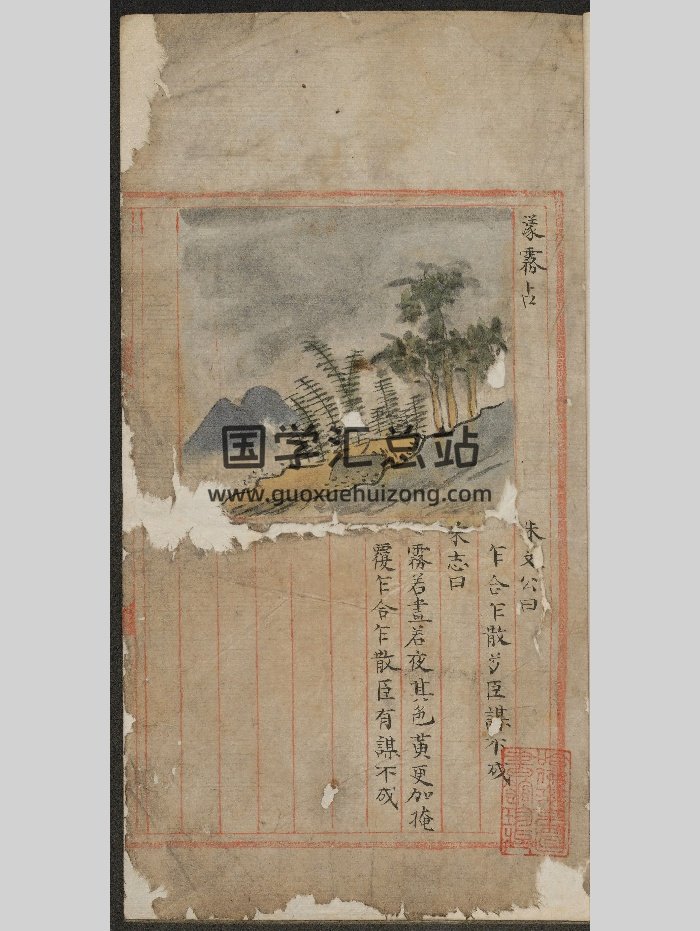 濛霧占
朱文公曰
乍合乍散步臣謀不成
宋志曰
霧若晝若夜其色黃更加掩
覆乍合乍散臣有謀不成
国学汇总站
www.guoxuehuizong.com